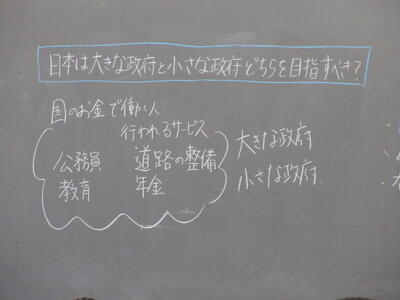 日本は大きな政府と小さな政府どちらを目指すべき?
国のお金で働く人
行われるサービス
公務員 道路の整備
教育 年金
大きな政府
小さな政府